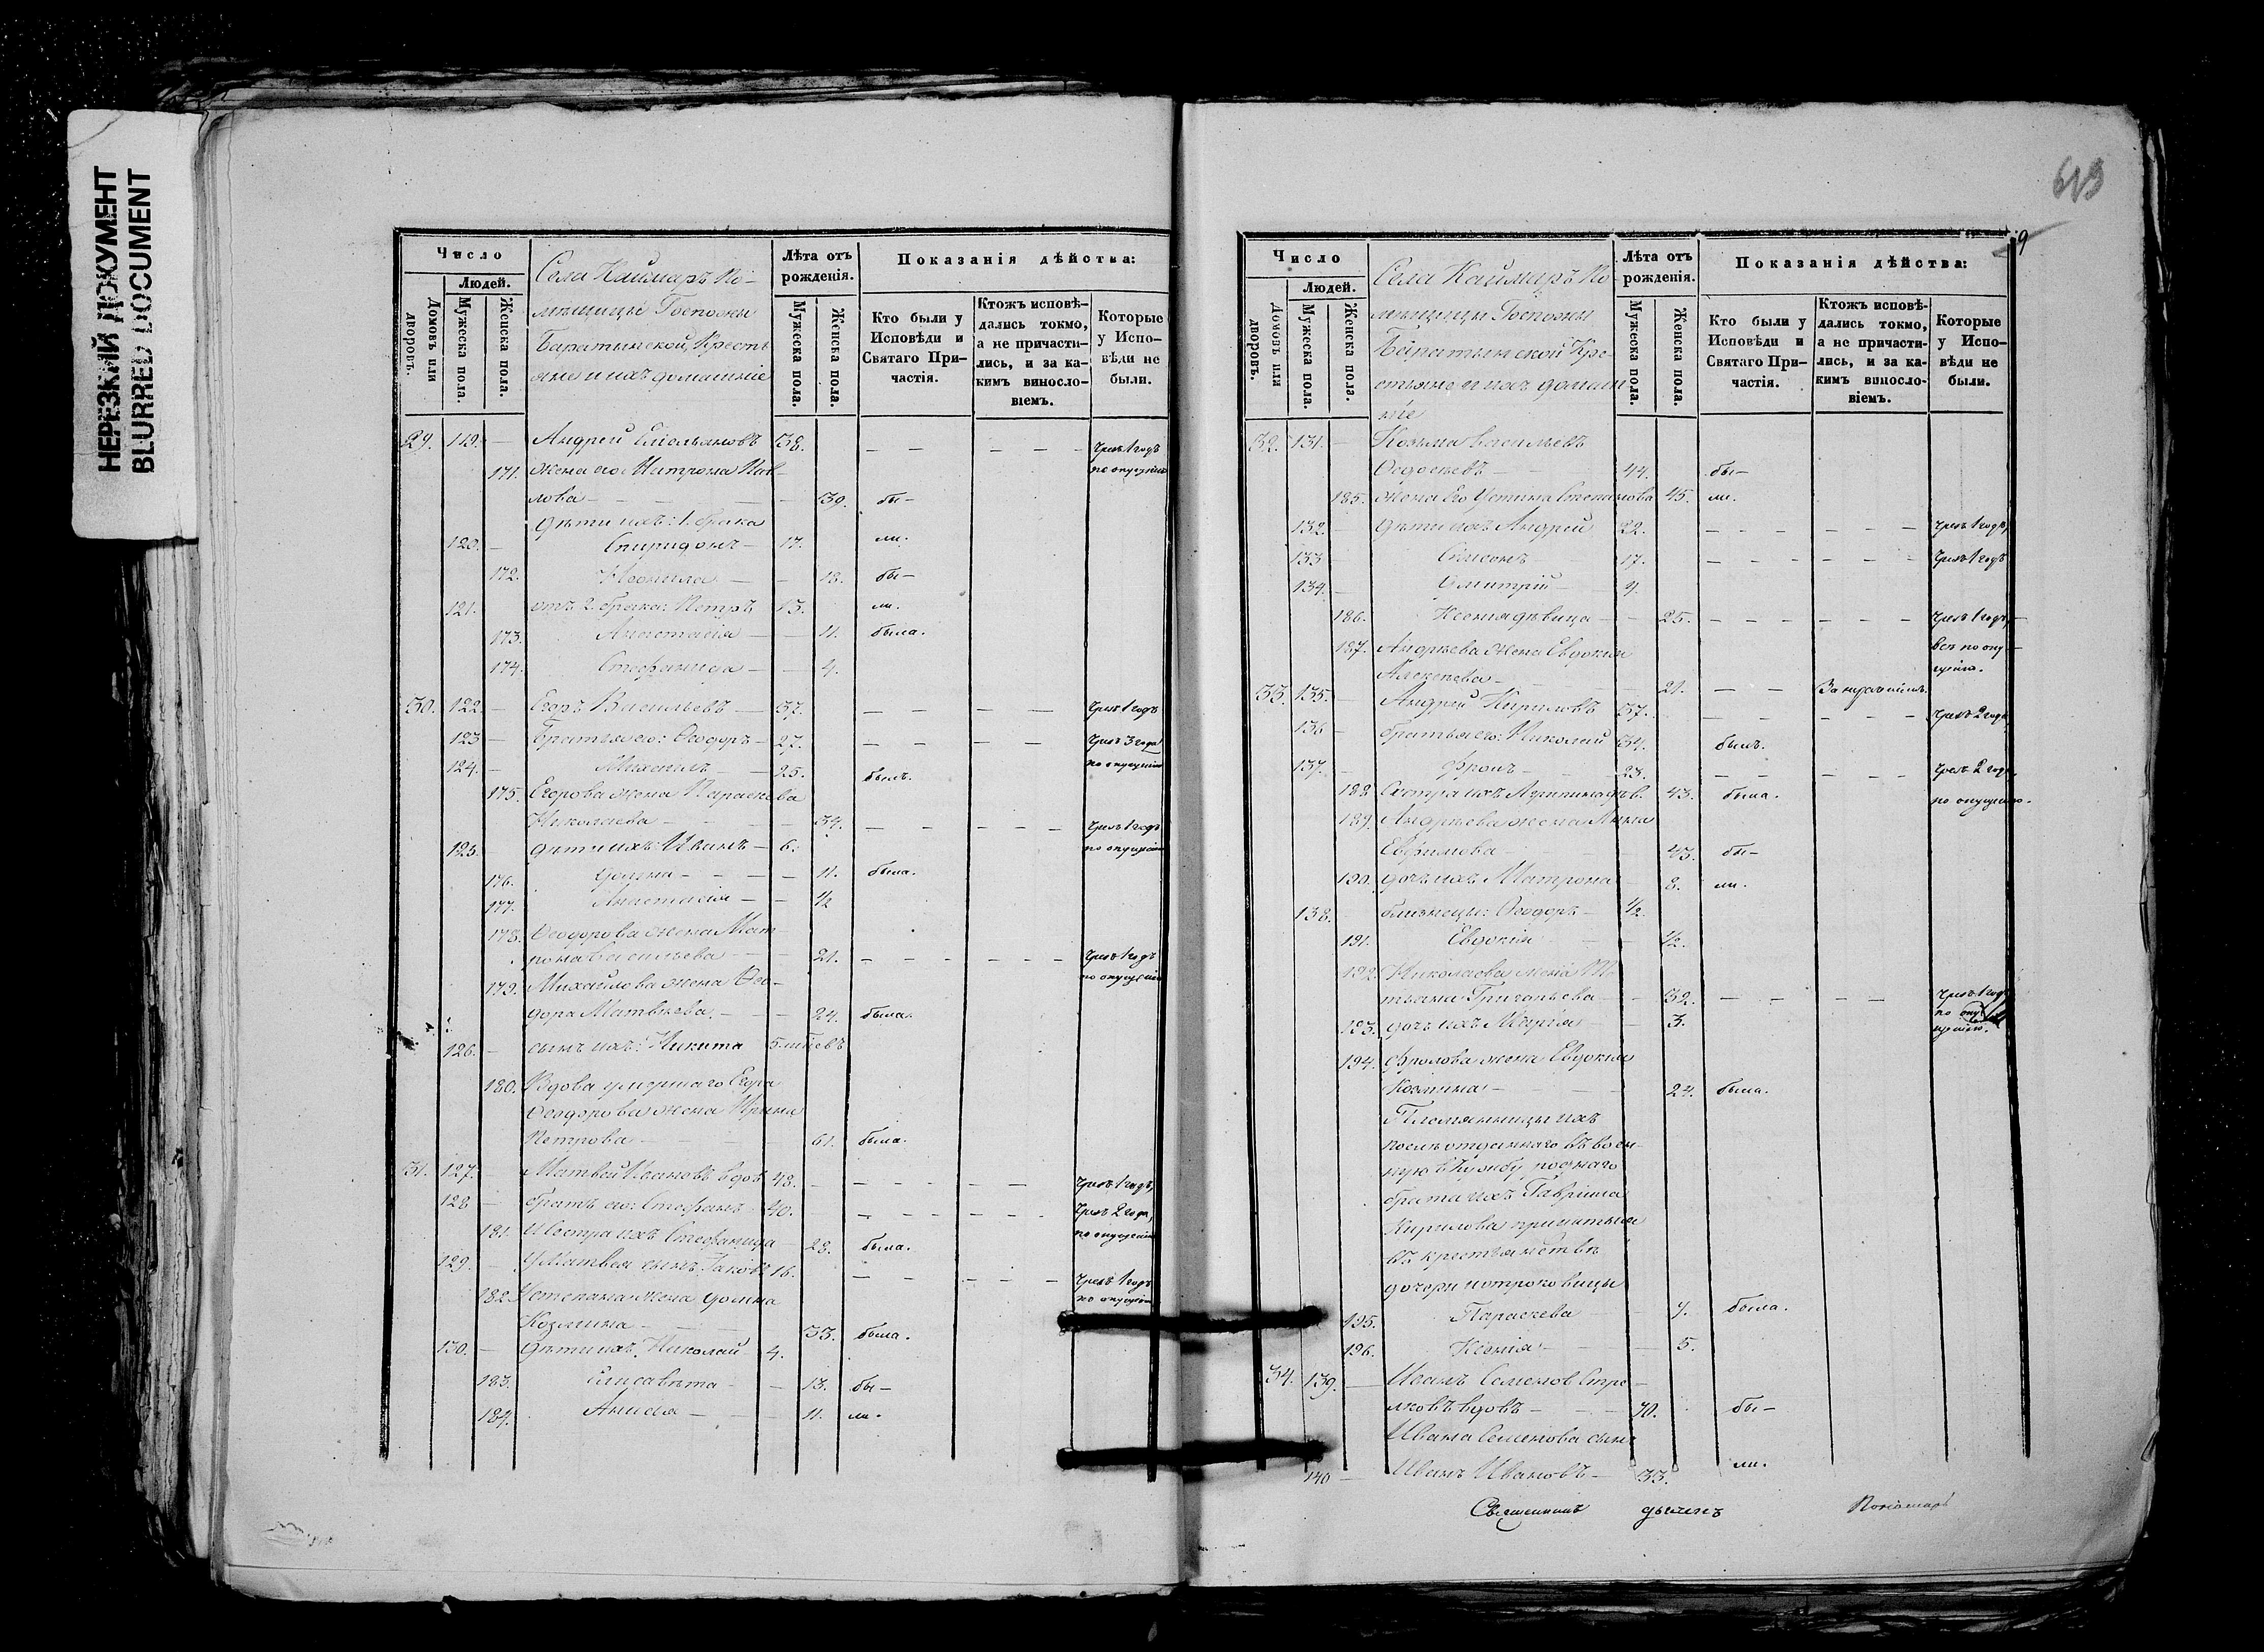 НЕРЕЗКИЙ ДОКУМЕНТ
BLURRED DOCUMENT
Число
Людей.
Домовъ или дворовъ.
Мужеска пола.
Женска пола.
Села Каймаръ По-
мѣщицы Госпожи
Баратынской Кресть
яне и ихъ домашніе
Лѣта отъ рожденія.
Мужеска пола.
Женска пола.
Показанія дѣйства:
Кто были у Исповѣди и Святаго При-частія.
Ктожъ исповѣ-дались токмо, а не причасти-лись, и за ка-кимъ винослo-віемъ.
Которые у Испо-вѣди не были.
29. 119. — Андрей Емельяновъ 38. — — — — чрезъ 1 годъ
171. жена его Матрона Пав- по опущенію
лова — 39. бы-
Дѣти ихъ: 1. брака
120. — Спиридонъ — 17. ли.
172. — 18. бы-
121. отъ 2. брака: Петръ 13. ли.
173. Анастасія — 11. была.
174. Стефанида — 4.
30. 122. — Егоръ Васильевъ — 37. — — — — чрезъ 1 годъ
123 — Братья его: Ѳеодоръ — 27. — — — — чрезъ 3 года
124. — Михаилъ — 25. былъ. по опущенію
175. Егорова жена Параскева
Николаева — 34. — — — — чрезъ 1 годъ
125. дѣти ихъ Иванъ — 6. по опущенію
176. Домна — 11. была.
177. Анастасія — 1/2
178. Ѳеодорова жена Мат-
рона Васильева — 21. — — — — чрезъ 1 годъ
179. Михайлова жена Ѳео- по опущенію
дора Матвѣева. — 24. была.
126. — сынъ ихъ: Никита 5.
180. Вдова умершаго Егора
Ѳеодорова жена Ирина
Петрова — 61. была.
31. 127. — Матвей Ивановъ вдов 48. — — — — чрезъ 1 годъ,
128 — братъ его: Стефанъ 40. — — — — чрезъ 2 года,
181. И Сестра ихъ Стефанида 28. была. по опущенію
129. — У Матвея сынъ Іаковъ 16. — — — — чрезъ 1 годъ
182. У Степана жена Домна по опущенію
Козмина — 33. была.
130. — Дѣти ихъ: Николай 4.
183. Елисавета — 13. бы-
184. Анисія — 11. ли.
619
9
Число
Людей.
Домовъ или дворовъ.
Мужеска пола.
Женска пола.
Села Каймаръ По-
мѣщицы Госпожи
Баратынской Кре-
стьяне и ихъ домаш
ніе
Лѣта отъ рожденія.
Мужеска пола.
Женска пола.
Показанія дѣйства:
Кто были у Исповѣди и Святаго При-частія.
Ктожъ исповѣ-дались токмо, а не причасти-лись, и за ка-кимъ винослo-віемъ.
Которые у Испо-вѣди не были.
32. 131. — Козьма Васильевъ
Ѳедосѣевъ — 44. бы-
185. жена Его Устина Степанова 45. ли.
132. — Дѣти ихъ Андрей 22. — — — — чрезъ 1 годъ,
133 Симеонъ 17. — — — — чрезъ 1 годъ
134. — Дмитрій — 9.
186. Ксенія дѣвица — 25. — — — — чрезъ 1 годъ,
187. Андрѣева жена Евдокія всѣ по опу-
Алексѣева — 21. — — За щенію.
33. 135. — Андрей Кириловъ 37. — — — — чрезъ 2 года
136 — братья его: Николай 34. былъ.
137. — Фролъ — 23. — — — — чрезъ 2 года,
188. Сестра ихъ Агрипина дѣв. 43. была. по опущенію.
189. Андрѣева жена Анна
Евфимова — 43. бы-
190. дочь ихъ Матрона — 8. ли.
138. близнецы: Ѳеодоръ — 1/2.
191. Евдокія — 1/2.
192. Николаева жена Та
тьяна Григорьева — 32. — — — — чрезъ 1 годъ
193. дочь ихъ Марія — 3. по опу
щенію.
194. Фролова жена Евдокія
Козмина — 24. была.
Племянницы ихъ
послѣ отданнаго въ воен-
ную службу роднаго
брата ихъ Гаврила
Кирилова прижитыя
въ крестьянствѣ
дочери и отроковицы
195. Параскева — 7. была.
196. Ксенія — 5.
34. 139. — Иванъ Семеновъ Стре-
лковъ вдовъ — 70. бы-
Ивана Семенова сынъ
140 — Иванъ Ивановъ — 33. ли.
Священникъ дьячекъ Пономарь